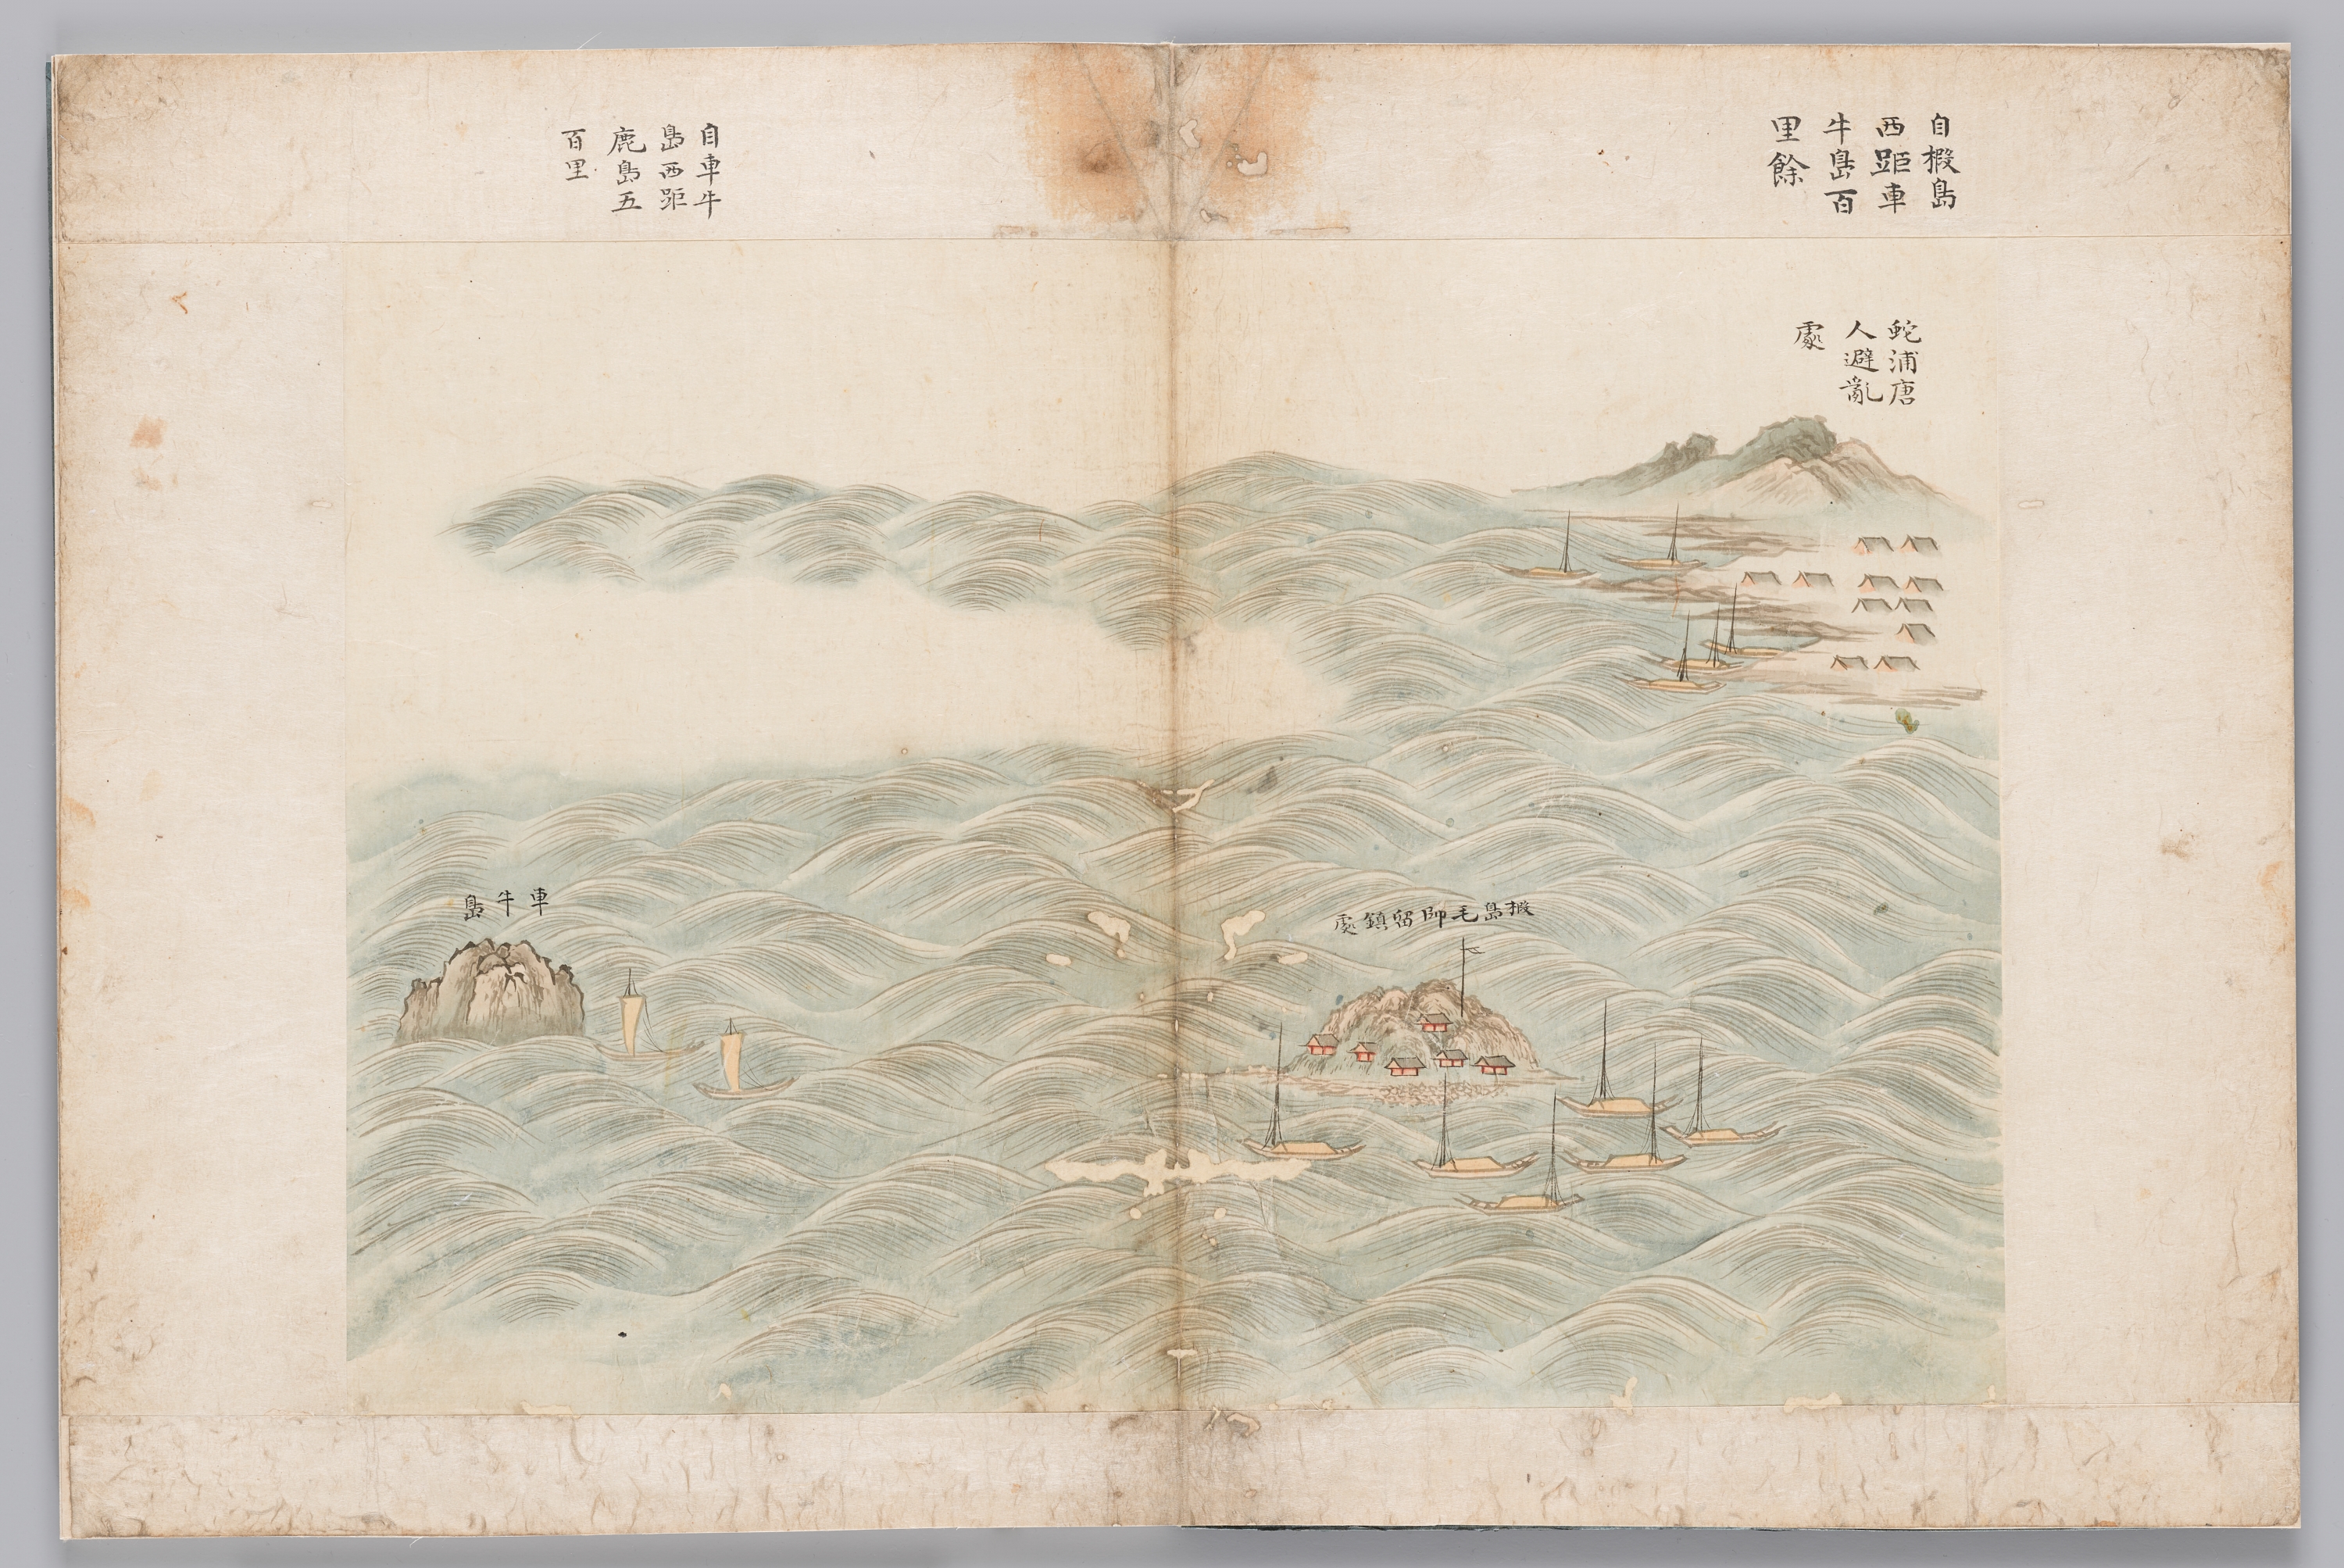 自椵島
西距車
牛島百
里餘
蛇浦唐
人避亂
處
椵島毛帥留鎮處
自車牛
島西距
鹿島五
百里
車牛島